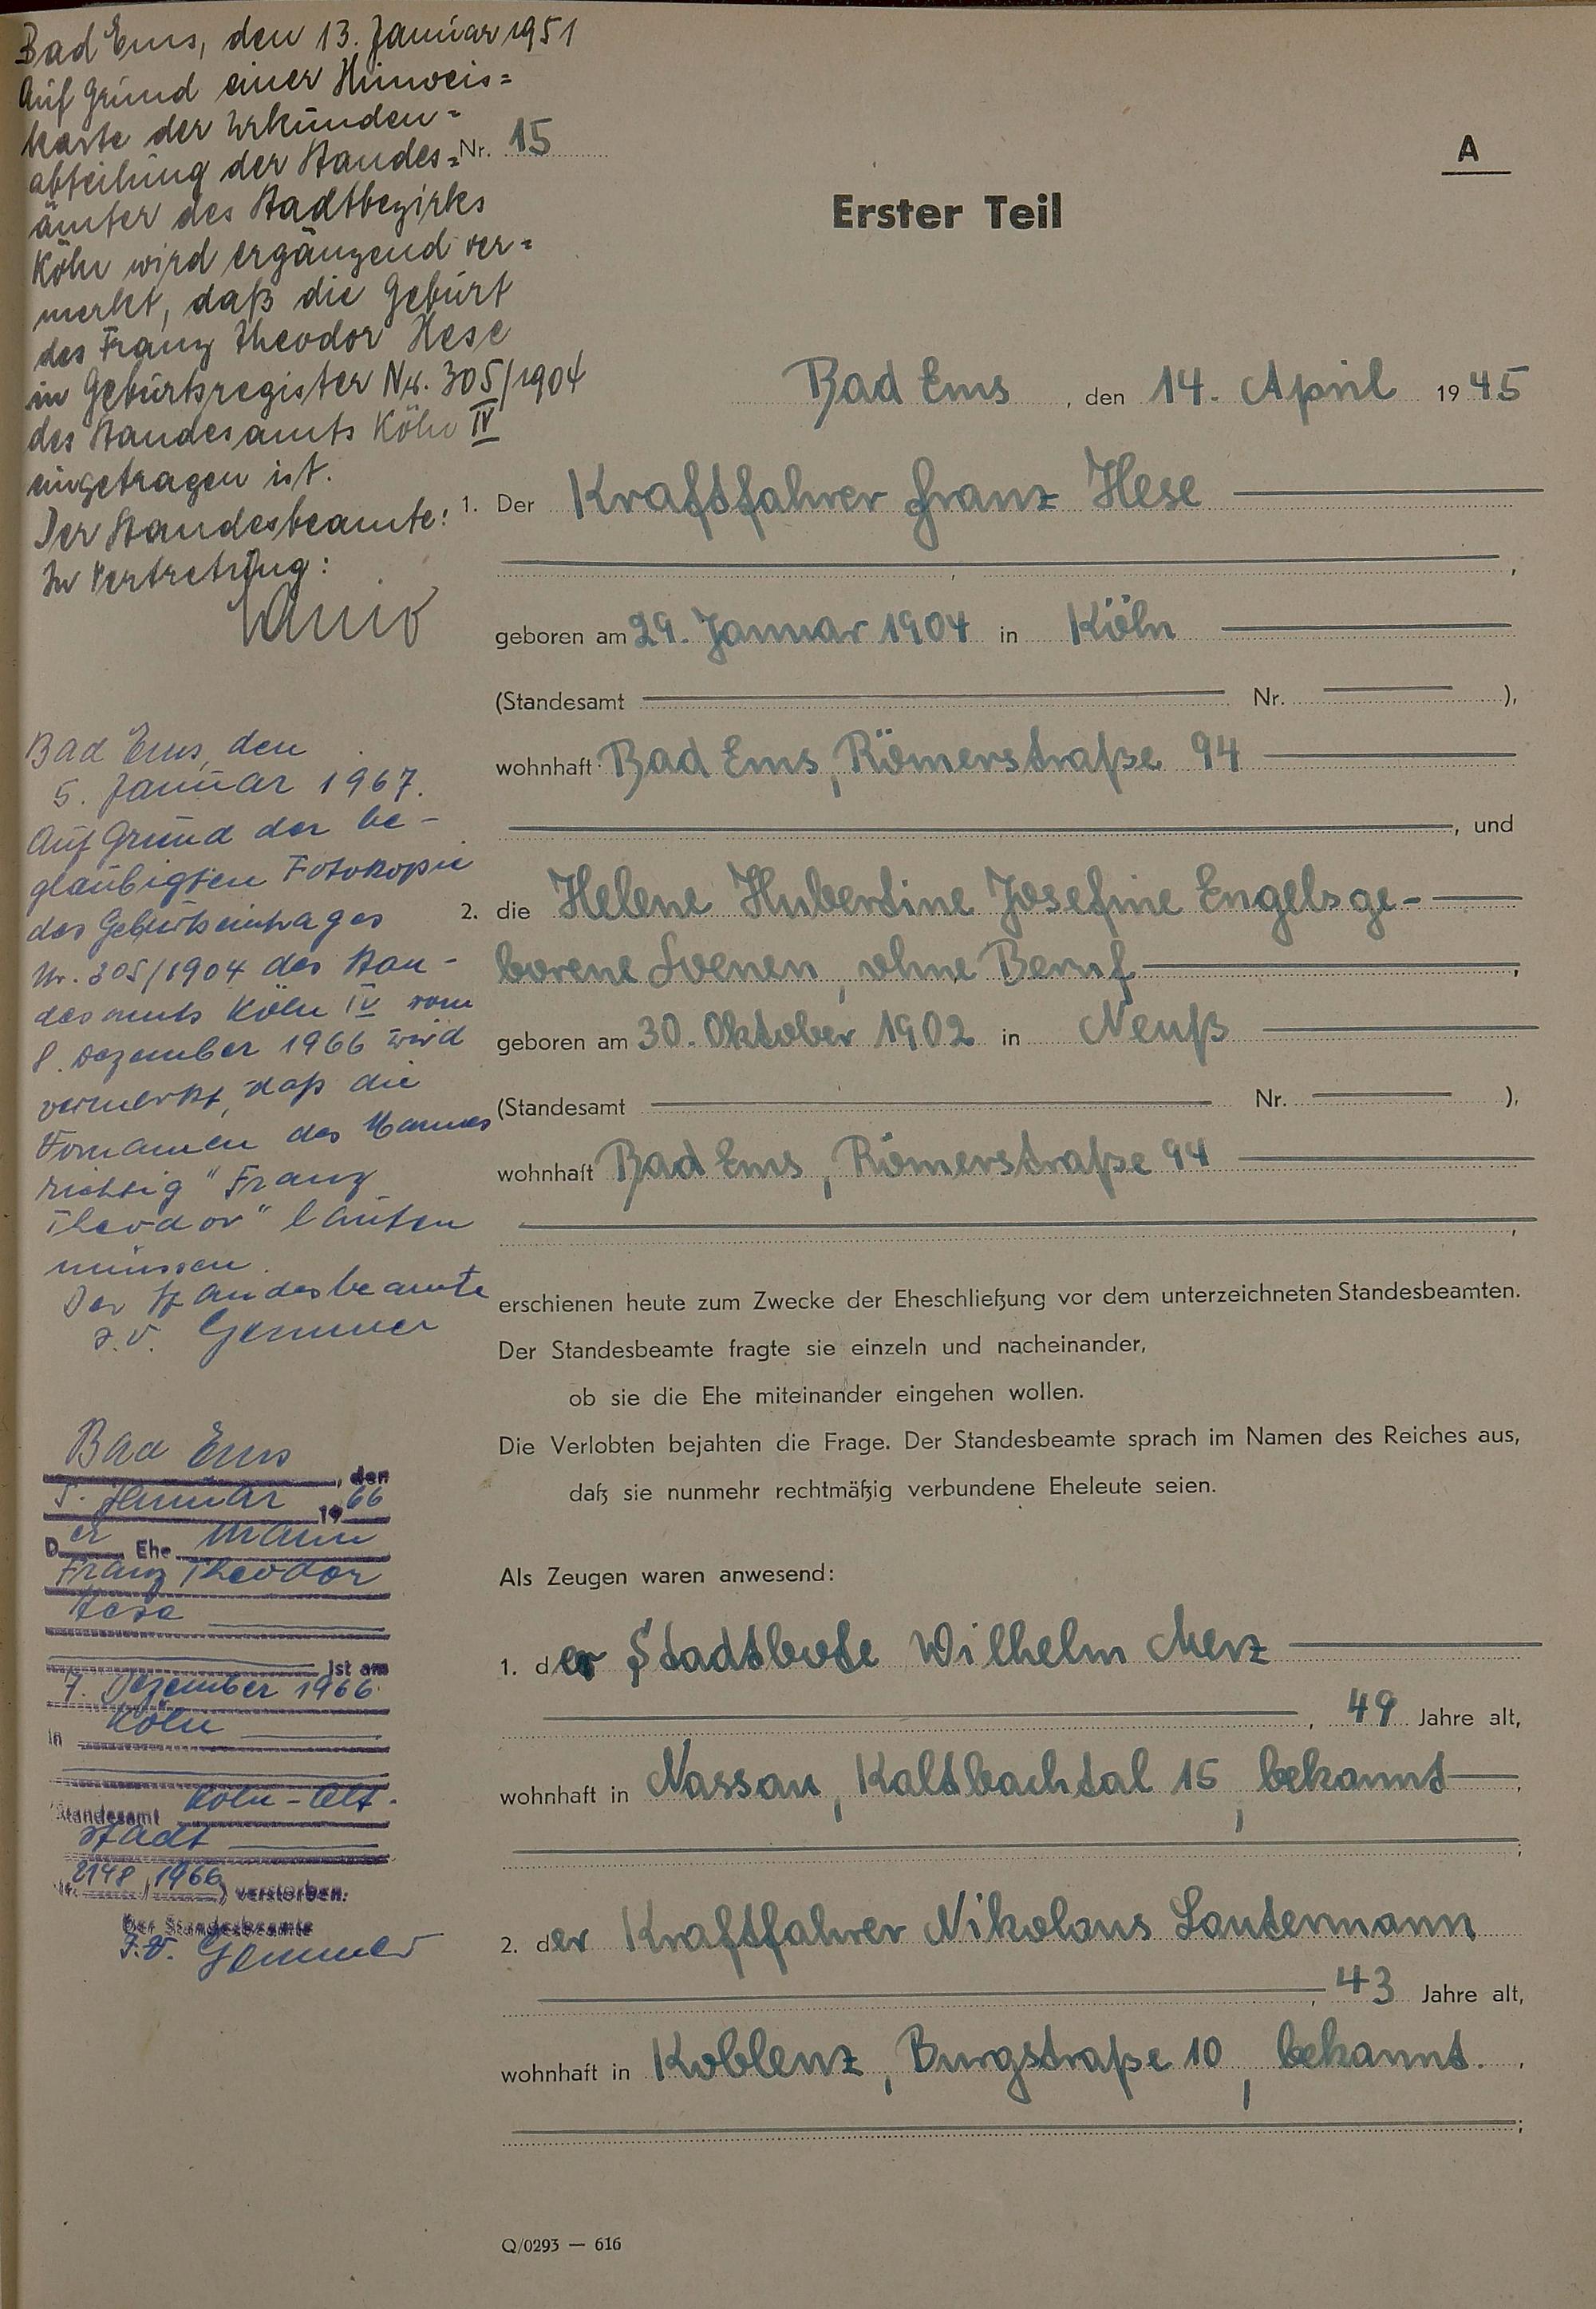 Bad Ems, den 13. Januar 1951
Auf Grund einer Hinweis=
karte der Urkunden=
abteilung der Standes=
ämter des Stadtbezirks
Köln wird ergänzend ver=
merkt, daß die Geburt
des Franz Theodor Hese
in Geburtsregister Nr. 305/1904
des Standesamts Köln IV
eingetragen ist.
Der Standesbeamte:
In Vertretung:
Bad Ems, den
5. Januar 1967.
Auf Grund der be-
glaubigten Fotokopie
des Geburtseintrages
Nr. 305/1904 des Stan-
desamts Köln IV vom
8. Dezember 1966 wird
vermerkt, daß die
Vornamen des Mannes
richtig "Franz
Theodor" lauten
müssen.
Der Standesbeamte
I.V. Gemmer
Bad Ems, den
5. Januar 1966
Der Ehemann
Franz Theodor
Hese
ist am
7. Dezember 1966
in Köln
Standesamt Köln-Alt-
stadt
Nr. 2148/1966) verstorben.
Der Standesbeamte
I.V. Gemmer
Nr. 15
A
Erster Teil
Bad Ems, den 14. April 1945
1. Der Kraftfahrer Franz Hese
,
geboren am 29. Januar 1904 in Köln
(Standesamt Nr. ),
wohnhaft Bad Ems, Römerstraße 94
, und
2. die Helene Hubertine Josefine Engels ge-
borene Loenen, ohne Beruf ,
geboren am 30. Oktober 1902 in Neuß
(Standesamt Nr. ),
wohnhaft Bad Ems, Römerstraße 94
,
erschienen heute zum Zwecke der Eheschließung vor dem unterzeichneten Standesbeamten.
Der Standesbeamte fragte sie einzeln und nacheinander,
ob sie die Ehe miteinander eingehen wollen.
Die Verlobten bejahten die Frage. Der Standesbeamte sprach im Namen des Reiches aus,
daß sie nunmehr rechtmäßig verbundene Eheleute seien.
Als Zeugen waren anwesend:
1. der Stadtbote Wilhelm Merz
, 49 Jahre alt,
wohnhaft in Nassau, Kaltbachtal 15, bekannt ,
;
2. der Kraftfahrer Nikolaus Lautermann
, 43 Jahre alt,
wohnhaft in Koblenz, Burgstraße 10, bekannt. ,
;
Q/0293 — 616